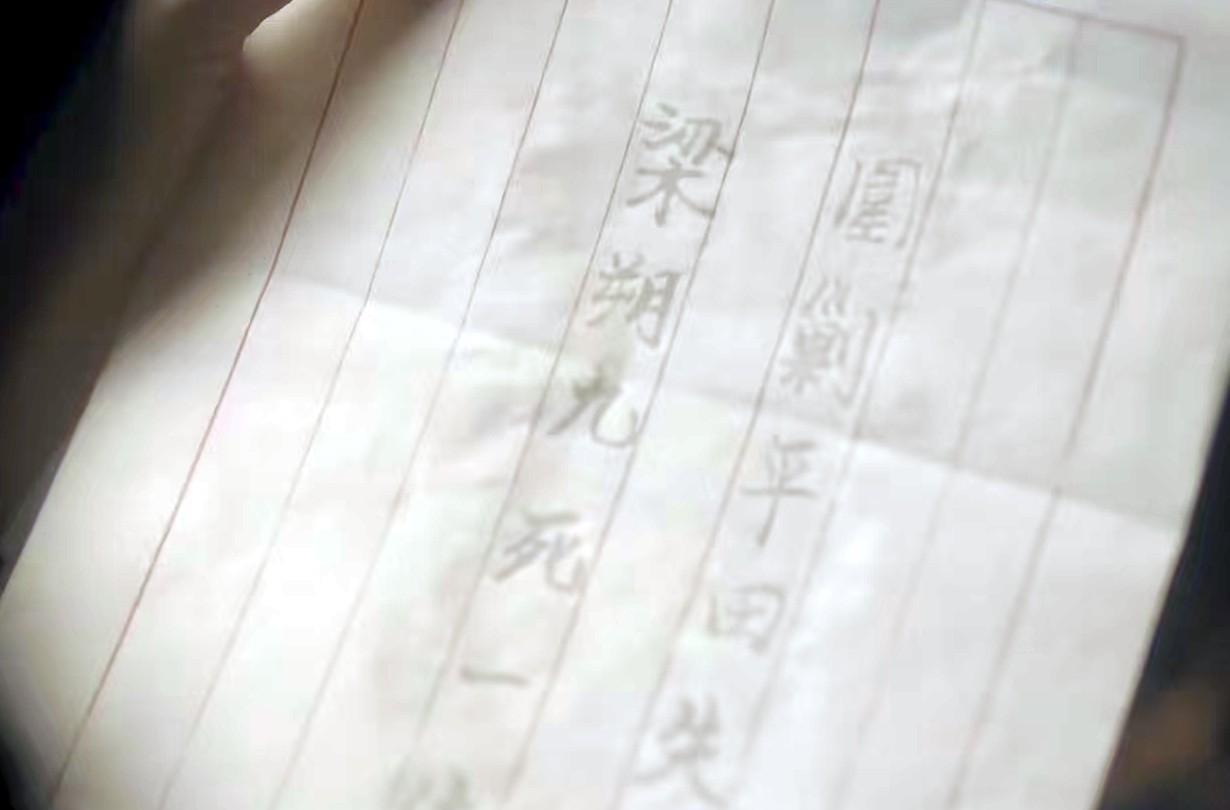 圍剿平田失
梁朔九死一